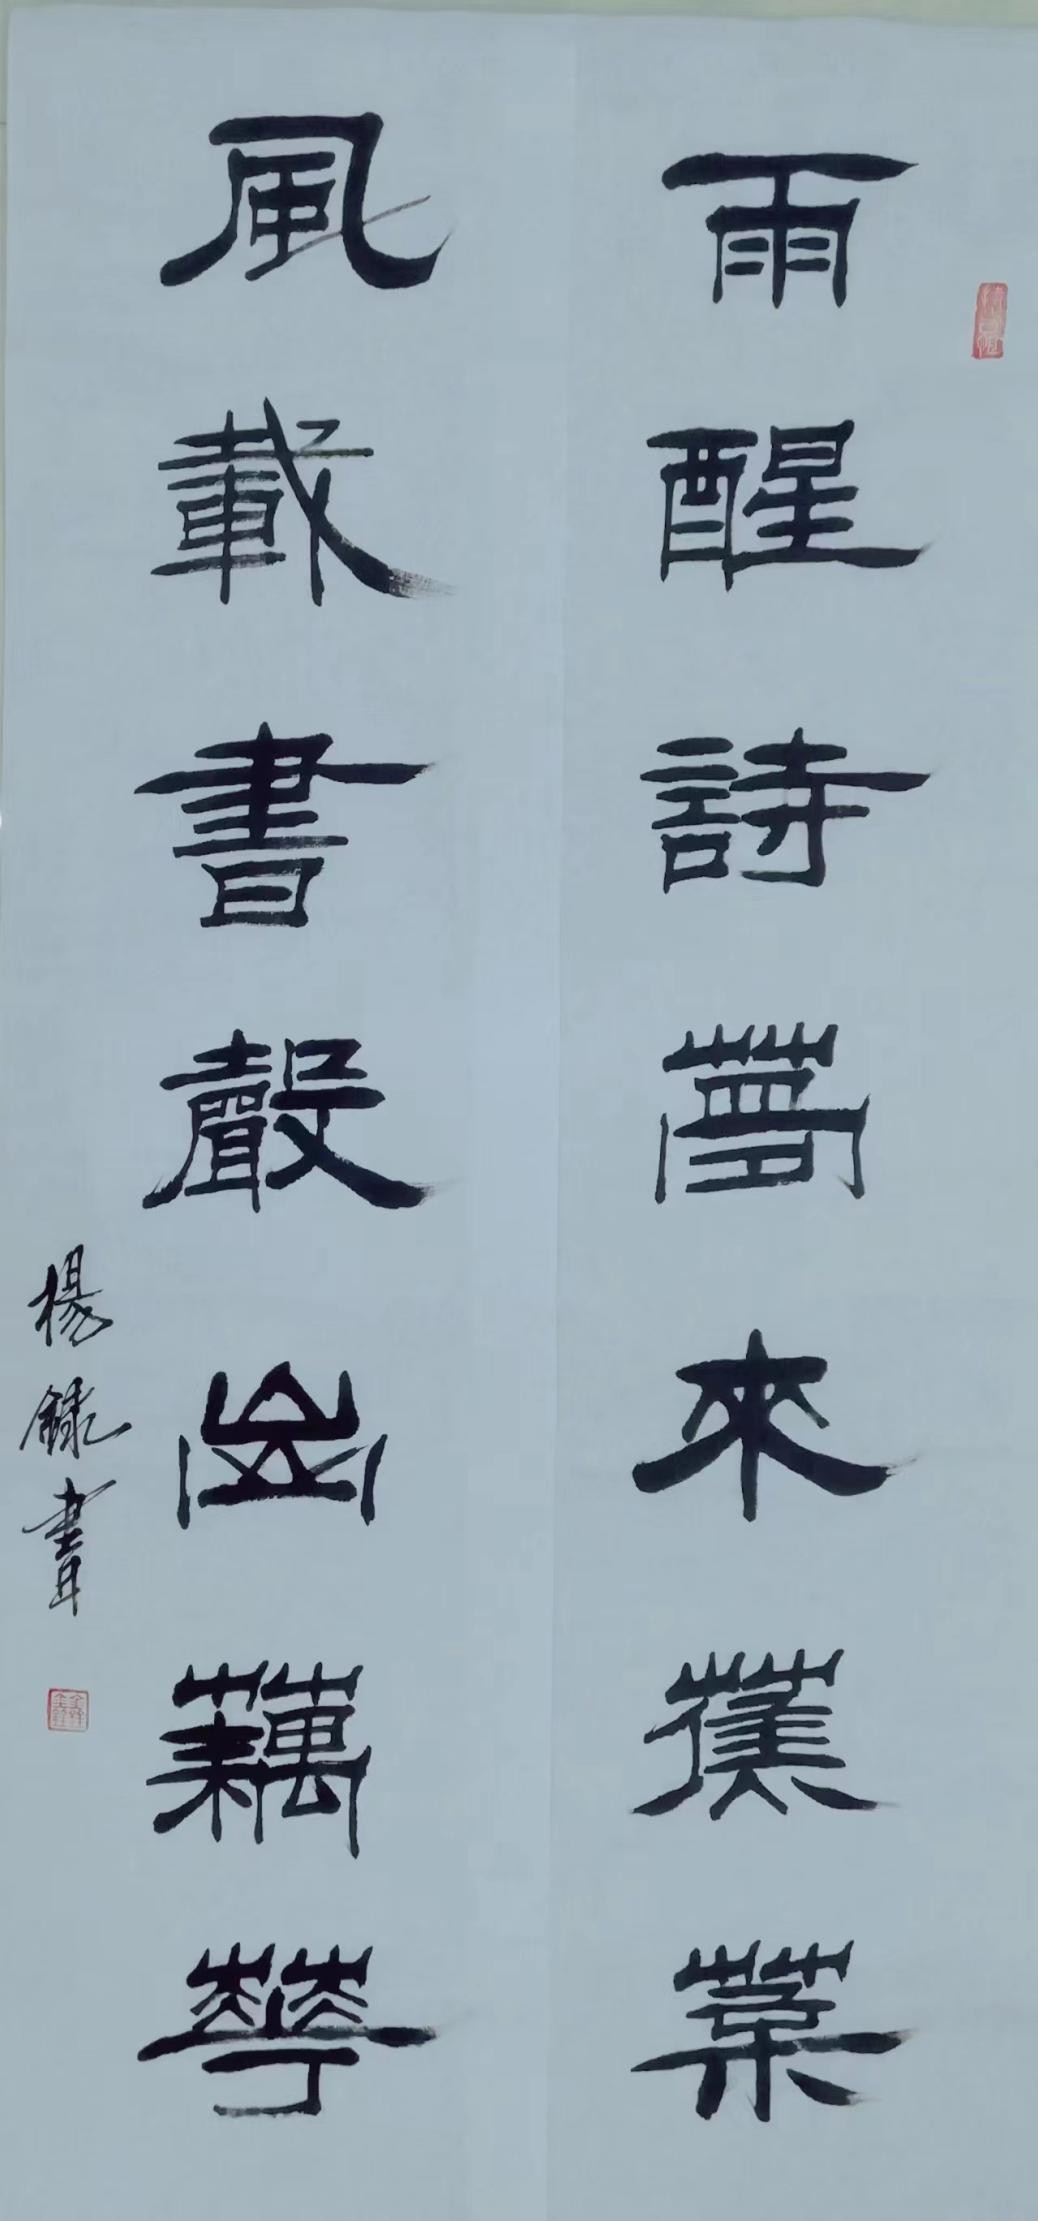 雨醒詩夢來蕉葉
風載書聲出藕花
楊録書